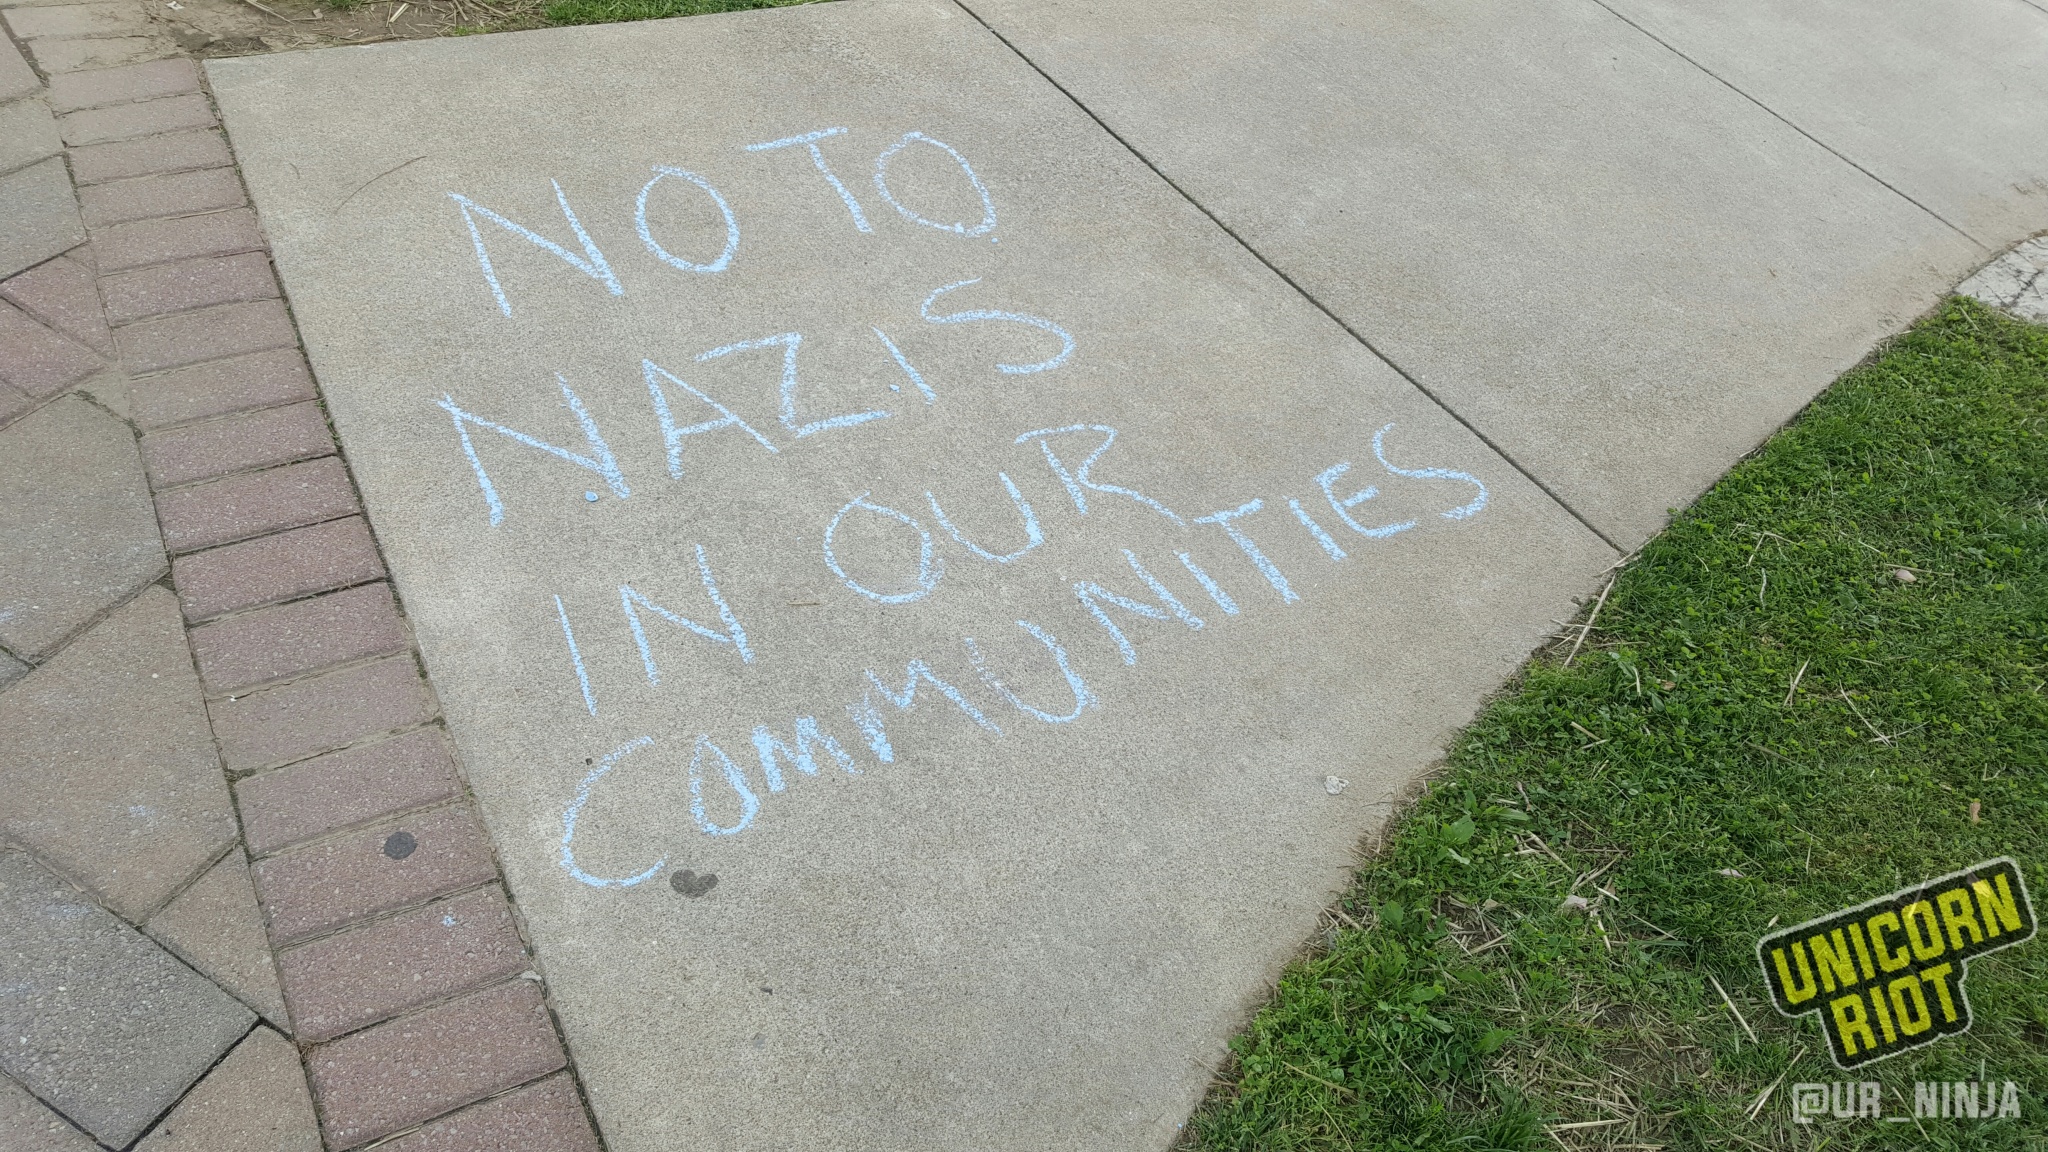 NO TO
NAZIS
IN OUR
COMMUNITIES
UNICORN
RIOT
@UR_NINJA